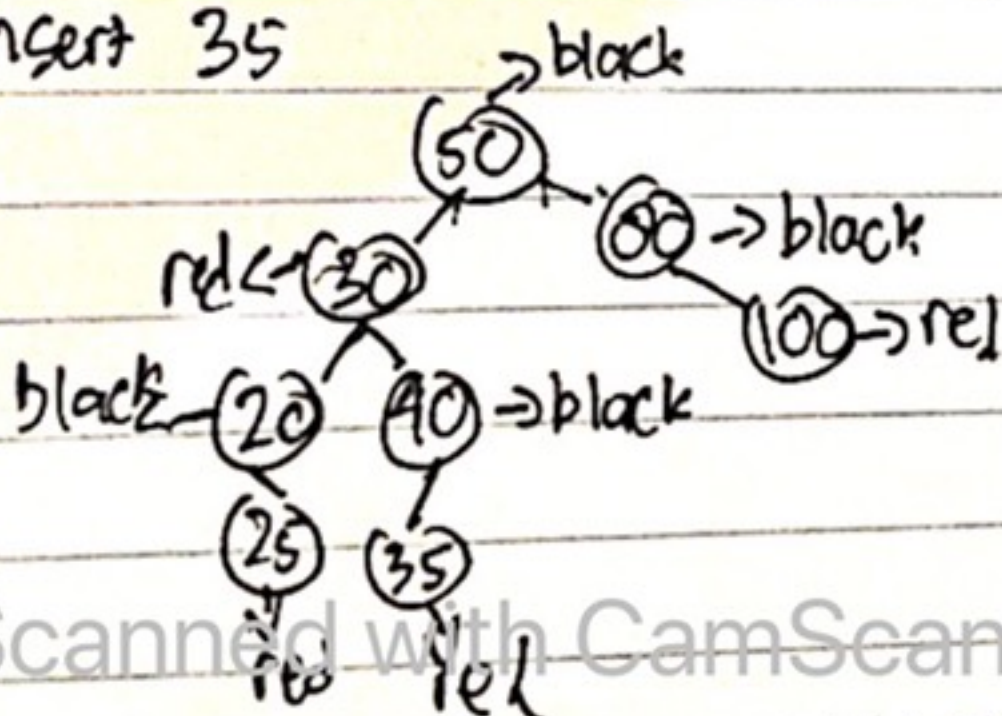 nsert 35
black
50
red 30
80 black
100 red
black 20
40 black
25
35
red
red
Scanned with CamScan